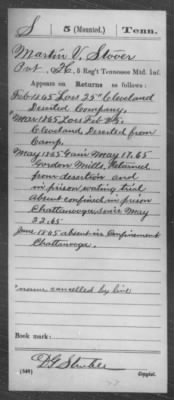 S 5 (Mounted.) Tenn.
Martin V. Stover
Pvt., Co. H, 5 Reg't Tennessee Mtd. Inf.
Appears on Returns as follows:
Feb 1865 Loss 25" Cleveland
Deserted Company.
"Mar 1865 Loss Feb
Cleveland Deserted from
Camp.
May 1865 Gain May 17.65
Gordon Mills, Returned
from desertion and
in prison waiting trial
absent confined in prison
Chattanooga since May
22.65
June 1865 absent in Confinement
Chattanooga.
"name cancelled by line
Book mark:
(546) Copyist.